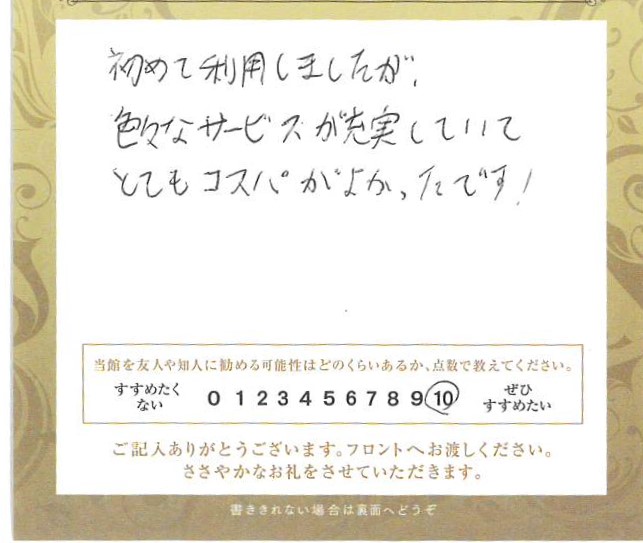 初めて利用しましたが、
色々なサービスが充実していて
とてもコスパがよかったです!
当館を友人や知人に勧める可能性はどのくらいあるか、点数で教えてください。
すすめたく
ない
0 1 2 3 4 5 6 7 8 9 10
ぜひ
すすめたい
ご記入ありがとうございます。フロントへお渡しください。
ささやかなお礼をさせていただきます。
書ききれない場合は裏面へどうぞ